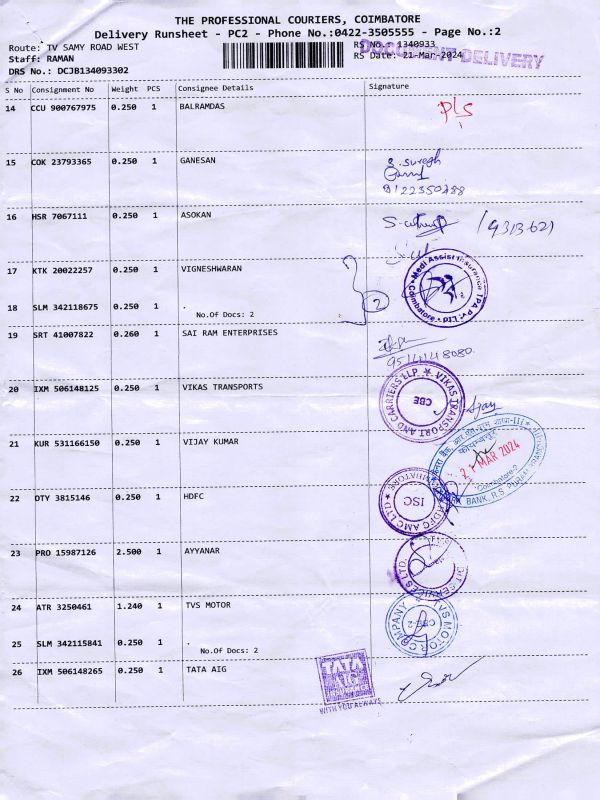 THE PROFESSIONAL COURIERS, COIMBATORE
Delivery Runsheet - PC2 - Phone No.:0422-3505555 - Page No.:2
Route: TV SAMY ROAD WEST
RS No.: 1340933
Staff: RAMAN
RS Date: 21-Mar-2024
DRS No.: DCJB134093302
DELIVERY
S No Consignment No Weight PCS Consignee Details Signature
14 CCU 900767975 0.250 1 BALRAMDAS
15 COK 23793365 0.250 1 GANESAN
S. Suresh
16 HSR 7067111 0.250 1 ASOKAN
17 KTK 20022257 0.250 1 VIGNESHWARAN
2
Medi Assist Insurance TPA Pvt. Ltd. Coimbatore
18 SLM 342118675 0.250 1 .
No.Of Docs: 2
19 SRT 41007822 0.260 1 SAI RAM ENTERPRISES
20 IXM 506148125 0.250 1 VIKAS TRANSPORTS
VIKAS TRANSPORT AND CARRIERS LLP.
CBE
21 KUR 531166150 0.250 1 VIJAY KUMAR
MAR 2024
Coimbatore-2
BANK, R.S. PURAM BRANCH
22 OTY 3815146 0.250 1 HDFC
HDFC AMC LTD
ISC
23 PRO 15987126 2.500 1 AYYANAR
SERVICES LTD.
24 ATR 3250461 1.240 1 TVS MOTOR
TVS MOTOR COMPANY
CBE-2
25 SLM 342115841 0.250 1 .
No.Of Docs: 2
26 IXM 506148265 0.250 1 TATA AIG
TATA
AIG
INSURANCE
WITH YOU ALWAYS